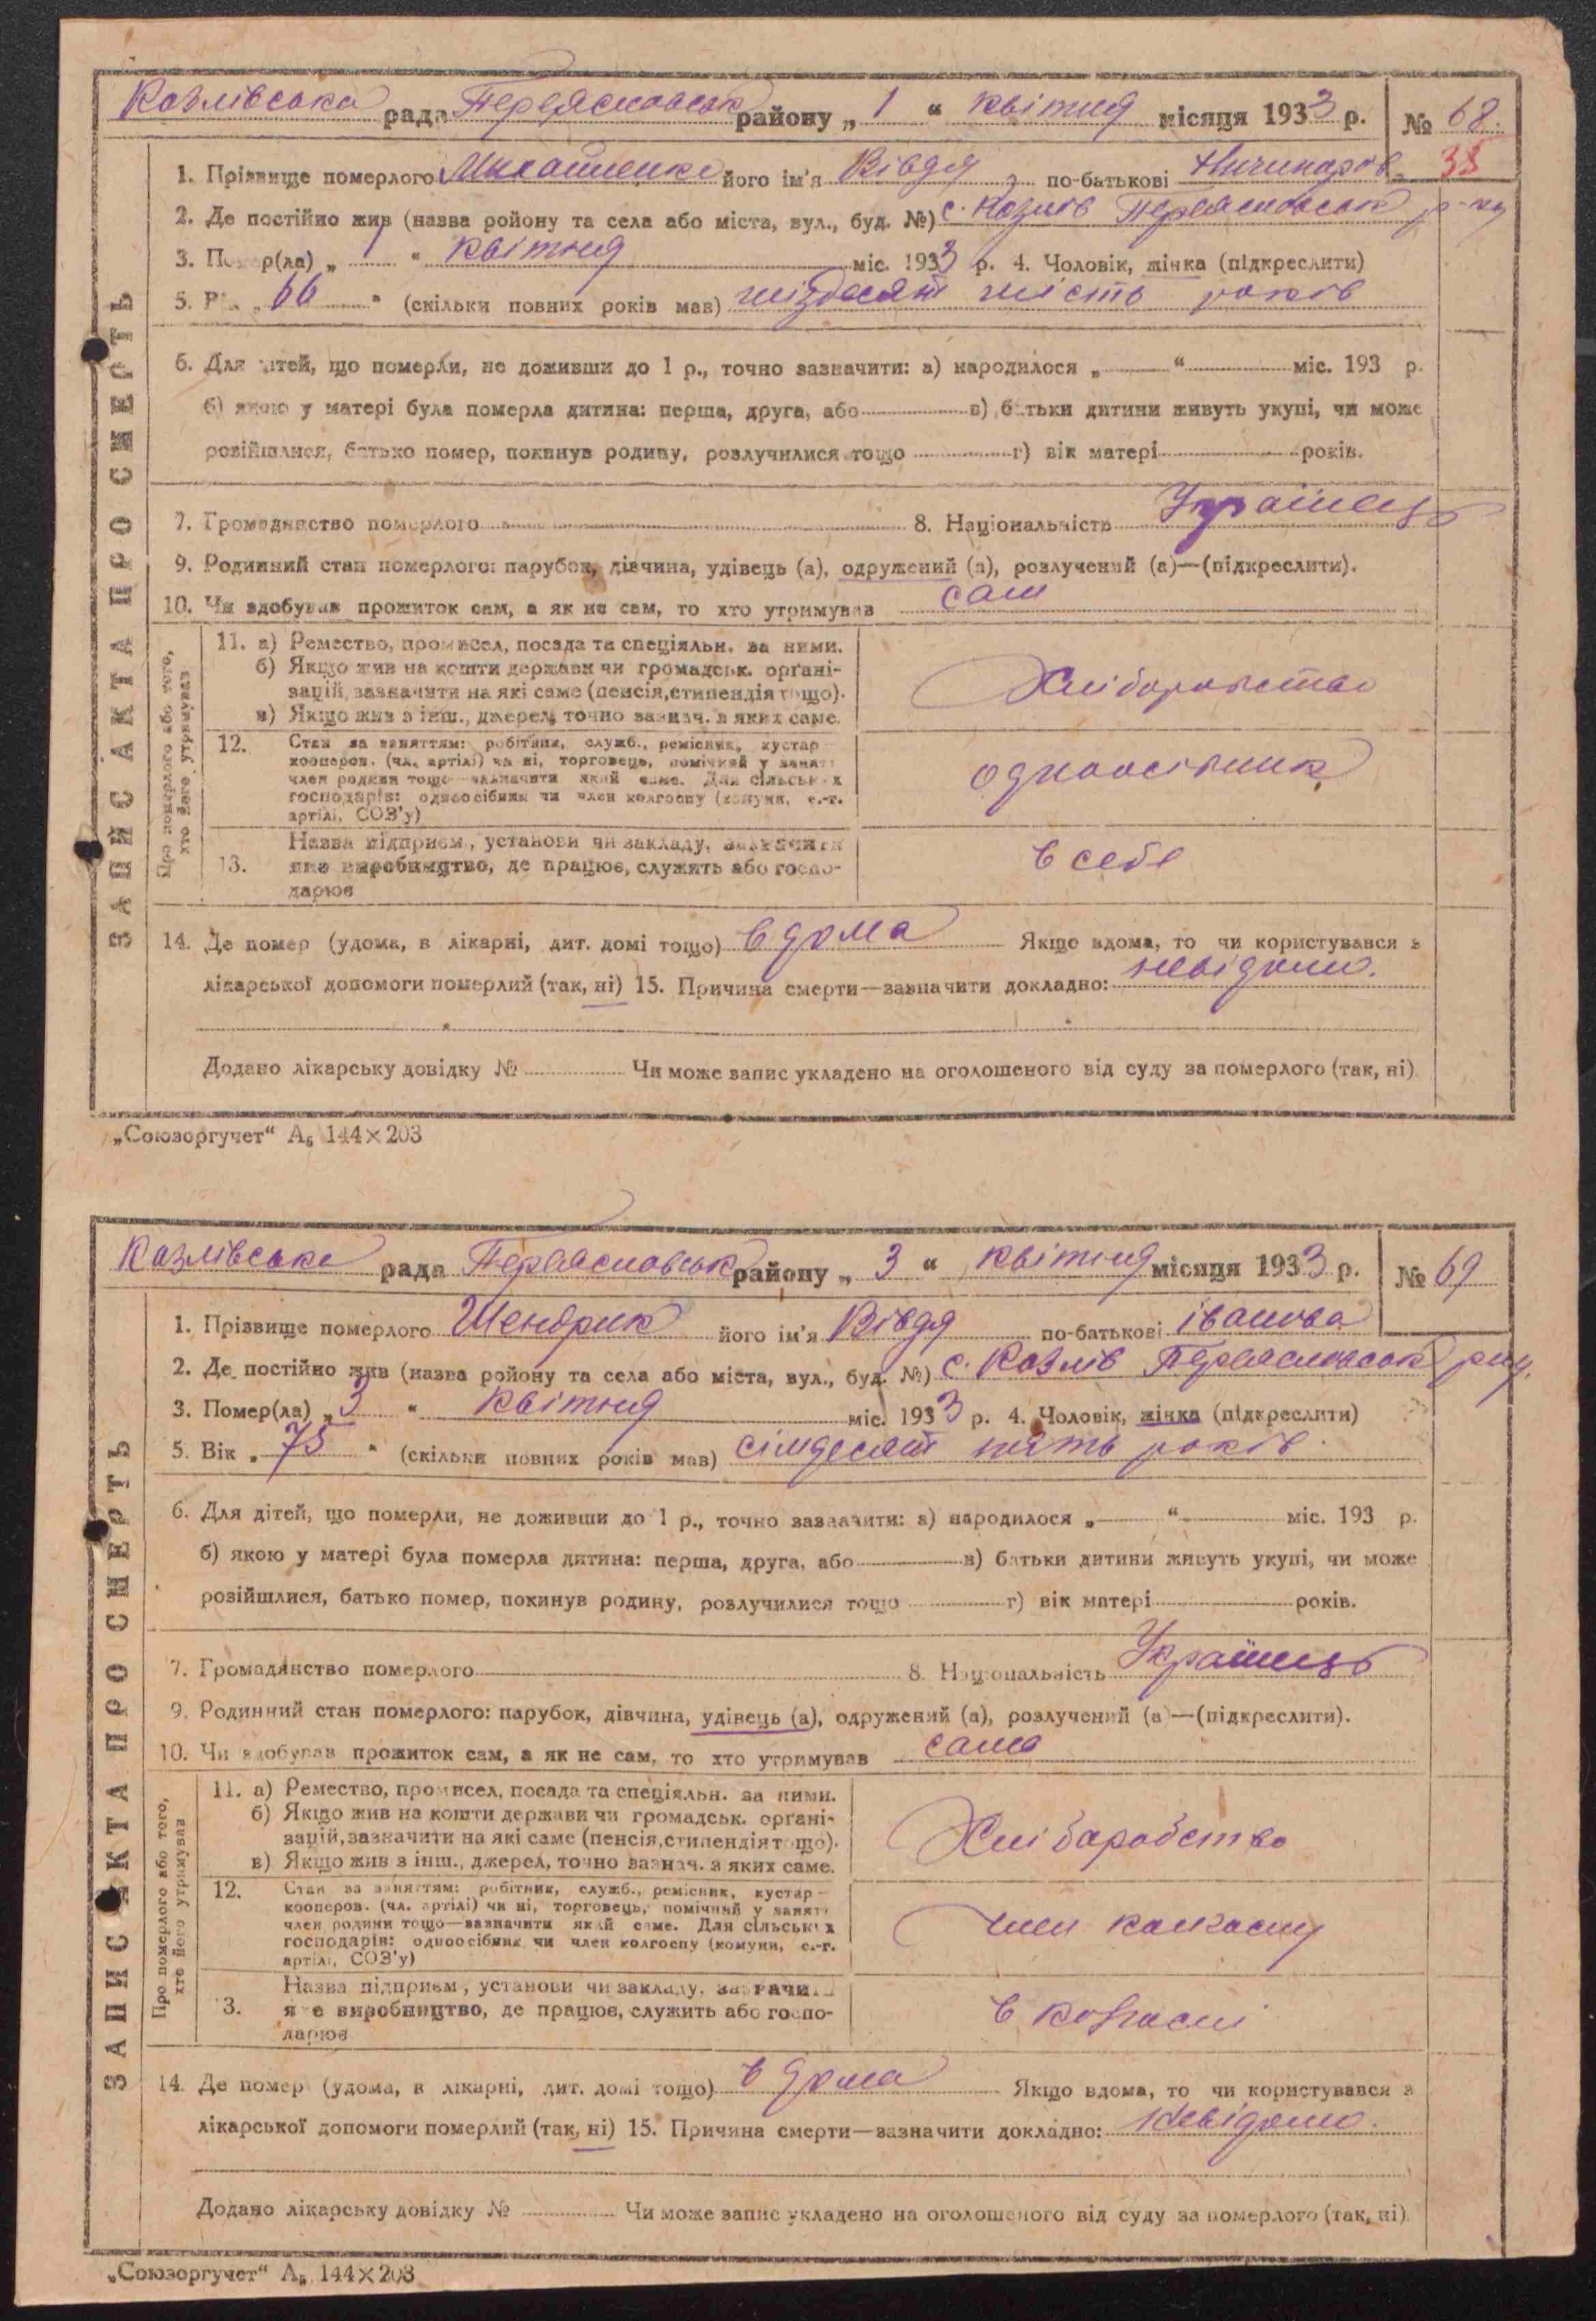 Козлівська рада Переясловськ району „ 1 “ квітня місяця 1933 р. № 68.
1. Прізвище померлого Михайленко його ім'я Вівдя, по-батькові Ничипоров. 38
2. Де постійно жив (назва ройону та села або міста, вул., буд. №) с. Козлів Переясловськ р-ну
3. Помер(ла) „ 1 “ квітня міс. 1933 р. 4. Чоловік, жінка (підкреслити)
5. Вік „ 66 “ (скільки повних років мав) шіздесят шість років
6. Для дітей, що померли, не доживши до 1 р., точно зазначити: а) народилося „ “ міс. 193 р.
б) якою у матері була померла дитина: перша, друга, або в) батьки дитини живуть укупі, чи може
розійшлися, батько помер, покинув родину, розлучилися тощо г) вік матері років.
7. Громадянство померлого 8. Національність Українець
9. Родинний стан померлого: парубок, дівчина, удівець (а), одружений (а), розлучений (а)—(підкреслити).
10. Чи здобував прожиток сам, а як не сам, то хто утримував сам
ЗАПИС АКТА ПРО СМЕРТЬ
Про померлого або того, хто його утримував
11. а) Ремество, промисел, посада та спеціяльн. за ними.
б) Якщо жив на кошти держави чи громадськ. орґані-
зацій, зазначити на які саме (пенсія, стипендія тощо).
в) Якщо жив з інш., джерел, точно зазнач. з яких саме.
Хліборобство
12. Стан за заняттям: робітник, служб., ремісник, кустар—
кооперов. (чл. артілі) чи ні, торговець, помічний у занят.
член родини тощо—зазначити який саме. Для сільських
господарів: одноосібник чи член колгоспу (комуни, с.-г.
артілі, СОЗ'у)
одноосібник
13. Назва підприєм., установи чи закладу, зазначити
яке виробництво, де працює, служить або госпо-
дарює
в себе
14. Де помер (удома, в лікарні, дит. домі тощо) в дома Якщо вдома, то чи користувався з
лікарської допомоги померлий (так, ні) 15. Причина смерти—зазначити докладно: невідомо.
Додано лікарську довідку № Чи може запис укладено на оголошеного від суду за померлого (так, ні).
„Союзоргучет“ А₅ 144×203
Козлівська рада Переясловськ району „ 3 “ квітня місяця 1933 р. № 69
1. Прізвище померлого Шендрик його ім'я Вівдя по-батькові івановa
2. Де постійно жив (назва ройону та села або міста, вул., буд. №) с. Козлів Переясловськ рну.
3. Помер(ла) „ 3 “ квітня міс. 1933 р. 4. Чоловік, жінка (підкреслити)
5. Вік „ 75 “ (скільки повних років мав) сімдесят пять років.
6. Для дітей, що померли, не доживши до 1 р., точно зазначити: а) народилося „ “ міс. 193 р.
б) якою у матері була померла дитина: перша, друга, або в) батьки дитини живуть укупі, чи може
розійшлися, батько помер, покинув родину, розлучилися тощо г) вік матері років.
7. Громадянство померлого 8. Національність Українець
9. Родинний стан померлого: парубок, дівчина, удівець (а), одружений (а), розлучений (а)—(підкреслити).
10. Чи здобував прожиток сам, а як не сам, то хто утримував сама
ЗАПИС АКТА ПРО СМЕРТЬ
Про померлого або того, хто його утримував
11. а) Ремество, промисел, посада та спеціяльн. за ними.
б) Якщо жив на кошти держави чи громадськ. орґані-
зацій, зазначити на які саме (пенсія, стипендія тощо).
в) Якщо жив з інш., джерел, точно зазнач. з яких саме.
Хліборобство
12. Стан за заняттям: робітник, служб., ремісник, кустар—
кооперов. (чл. артілі) чи ні, торговець, помічний у занят.
член родини тощо—зазначити який саме. Для сільських
господарів: одноосібник чи член колгоспу (комуни, с.-г.
артілі, СОЗ'у)
член колгоспу
13. Назва підприєм., установи чи закладу, зазначити
яке виробництво, де працює, служить або госпо-
дарює
в колгоспі
14. Де помер (удома, в лікарні, дит. домі тощо) в дома Якщо вдома, то чи користувався з
лікарської допомоги померлий (так, ні) 15. Причина смерти—зазначити докладно: невідомо.
Додано лікарську довідку № Чи може запис укладено на оголошеного від суду за померлого (так, ні).
„Союзоргучет“ А₅ 144×203